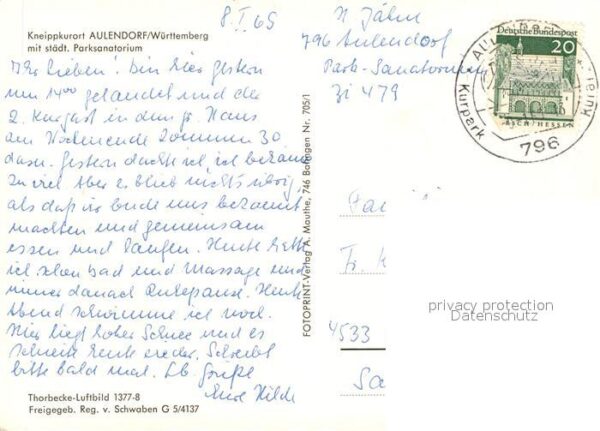 Kneippkurort AULENDORF/Württemberg
mit städt. Parksanatorium
8. I 65
H Jähn
796 Aulendorf
Park-Sanatorium
Zi 479
Deutsche Bundespost
20
ESCH/HESSEN
Kurpark
796
Ihr Lieben! Bin hier gestern
um 14⁰⁰ gelandet und der
2. Kurgast in dem gr. Haus
am Wochenende kommen 30
dazu. Gestern dachte ich ich bekäme
zu viel Aber es blieb nichts übrig,
als daß wir beide uns bekannt
machten und gemeinsam
essen und laufen. Heute hatte
ich schon bad und Massage und
immer danach Ruhepause. Heute
Abend schwimme ich noch.
Hier liegt hoher Schnee und es
schneite heute wieder. Schreibt
bitte bald mal. Lb Grüße
Eure Hilde
FOTOPRINT-Verlag A. Mauthe, 746 Balingen Nr. 705/1
Fr.
4533
privacy protection
Datenschutz
Thorbecke-Luftbild 1377-8
Freigegeb. Reg. v. Schwaben G 5/4137